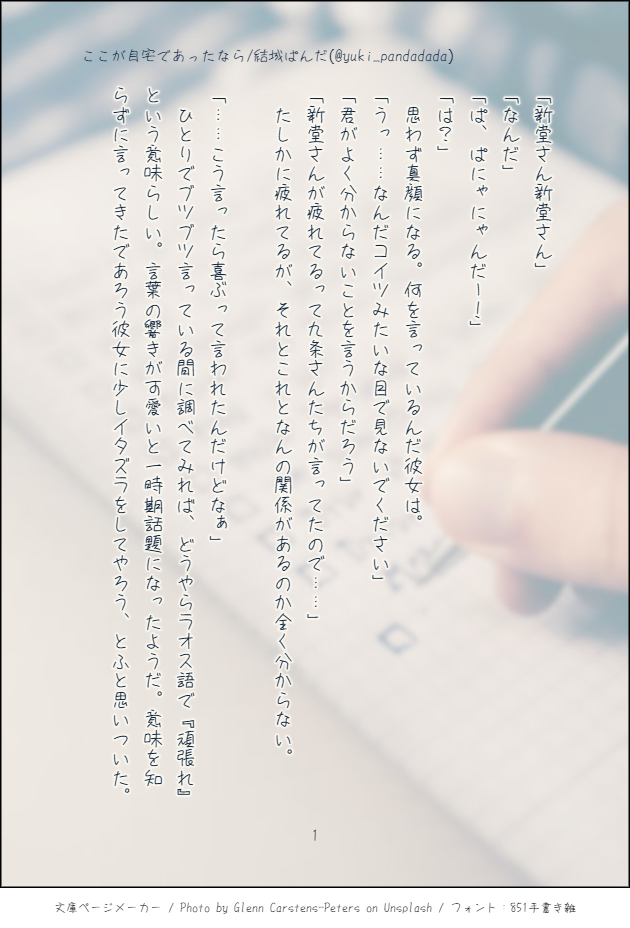 ここが自宅であったなら/結城ぱんだ(@yuki_pandadada)
「新堂さん新堂さん」
「なんだ」
「ぱ、ぱにゃにゃんだー！」
「は？」
　思わず真顔になる。何を言っているんだ彼女は。
「うっ……なんだコイツみたいな目で見ないでください」
「君がよく分からないことを言うからだろう」
「新堂さんが疲れてるって九条さんたちが言ってたので……」
　たしかに疲れてるが、それとこれとなんの関係があるのか全く分からない。
「……こう言ったら喜ぶって言われたんだけどなぁ」
　ひとりでブツブツ言っている間に調べてみれば、どうやらラオス語で『頑張れ』
という意味らしい。言葉の響きが可愛いと一時期話題になったようだ。意味を知
らずに言ってきたであろう彼女に少しイタズラをしてやろう、とふと思いついた。
1
文庫ページメーカー / Photo by Glenn Carstens-Peters on Unsplash / フォント：851手書き雑